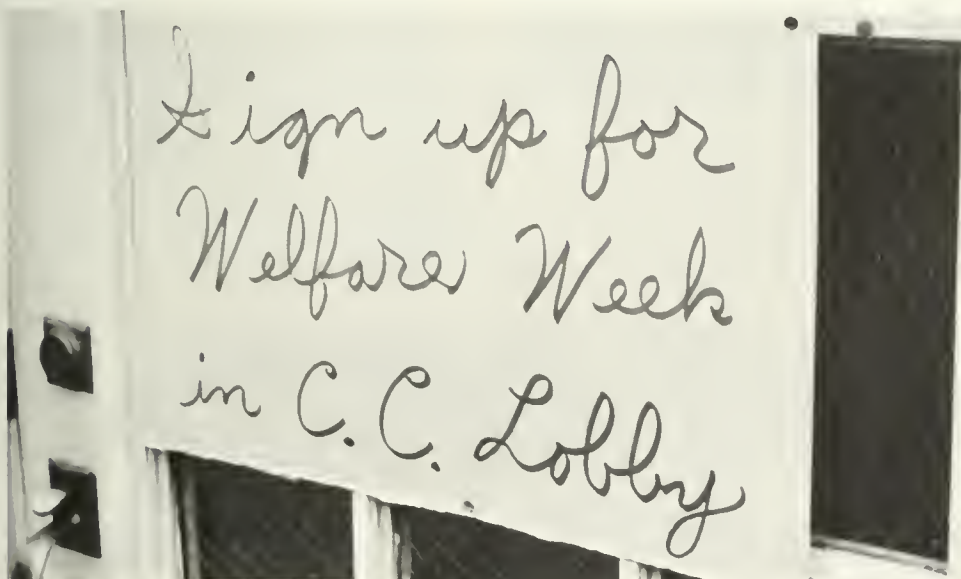 Sign up for
Welfare Week
in C.C. Lobby